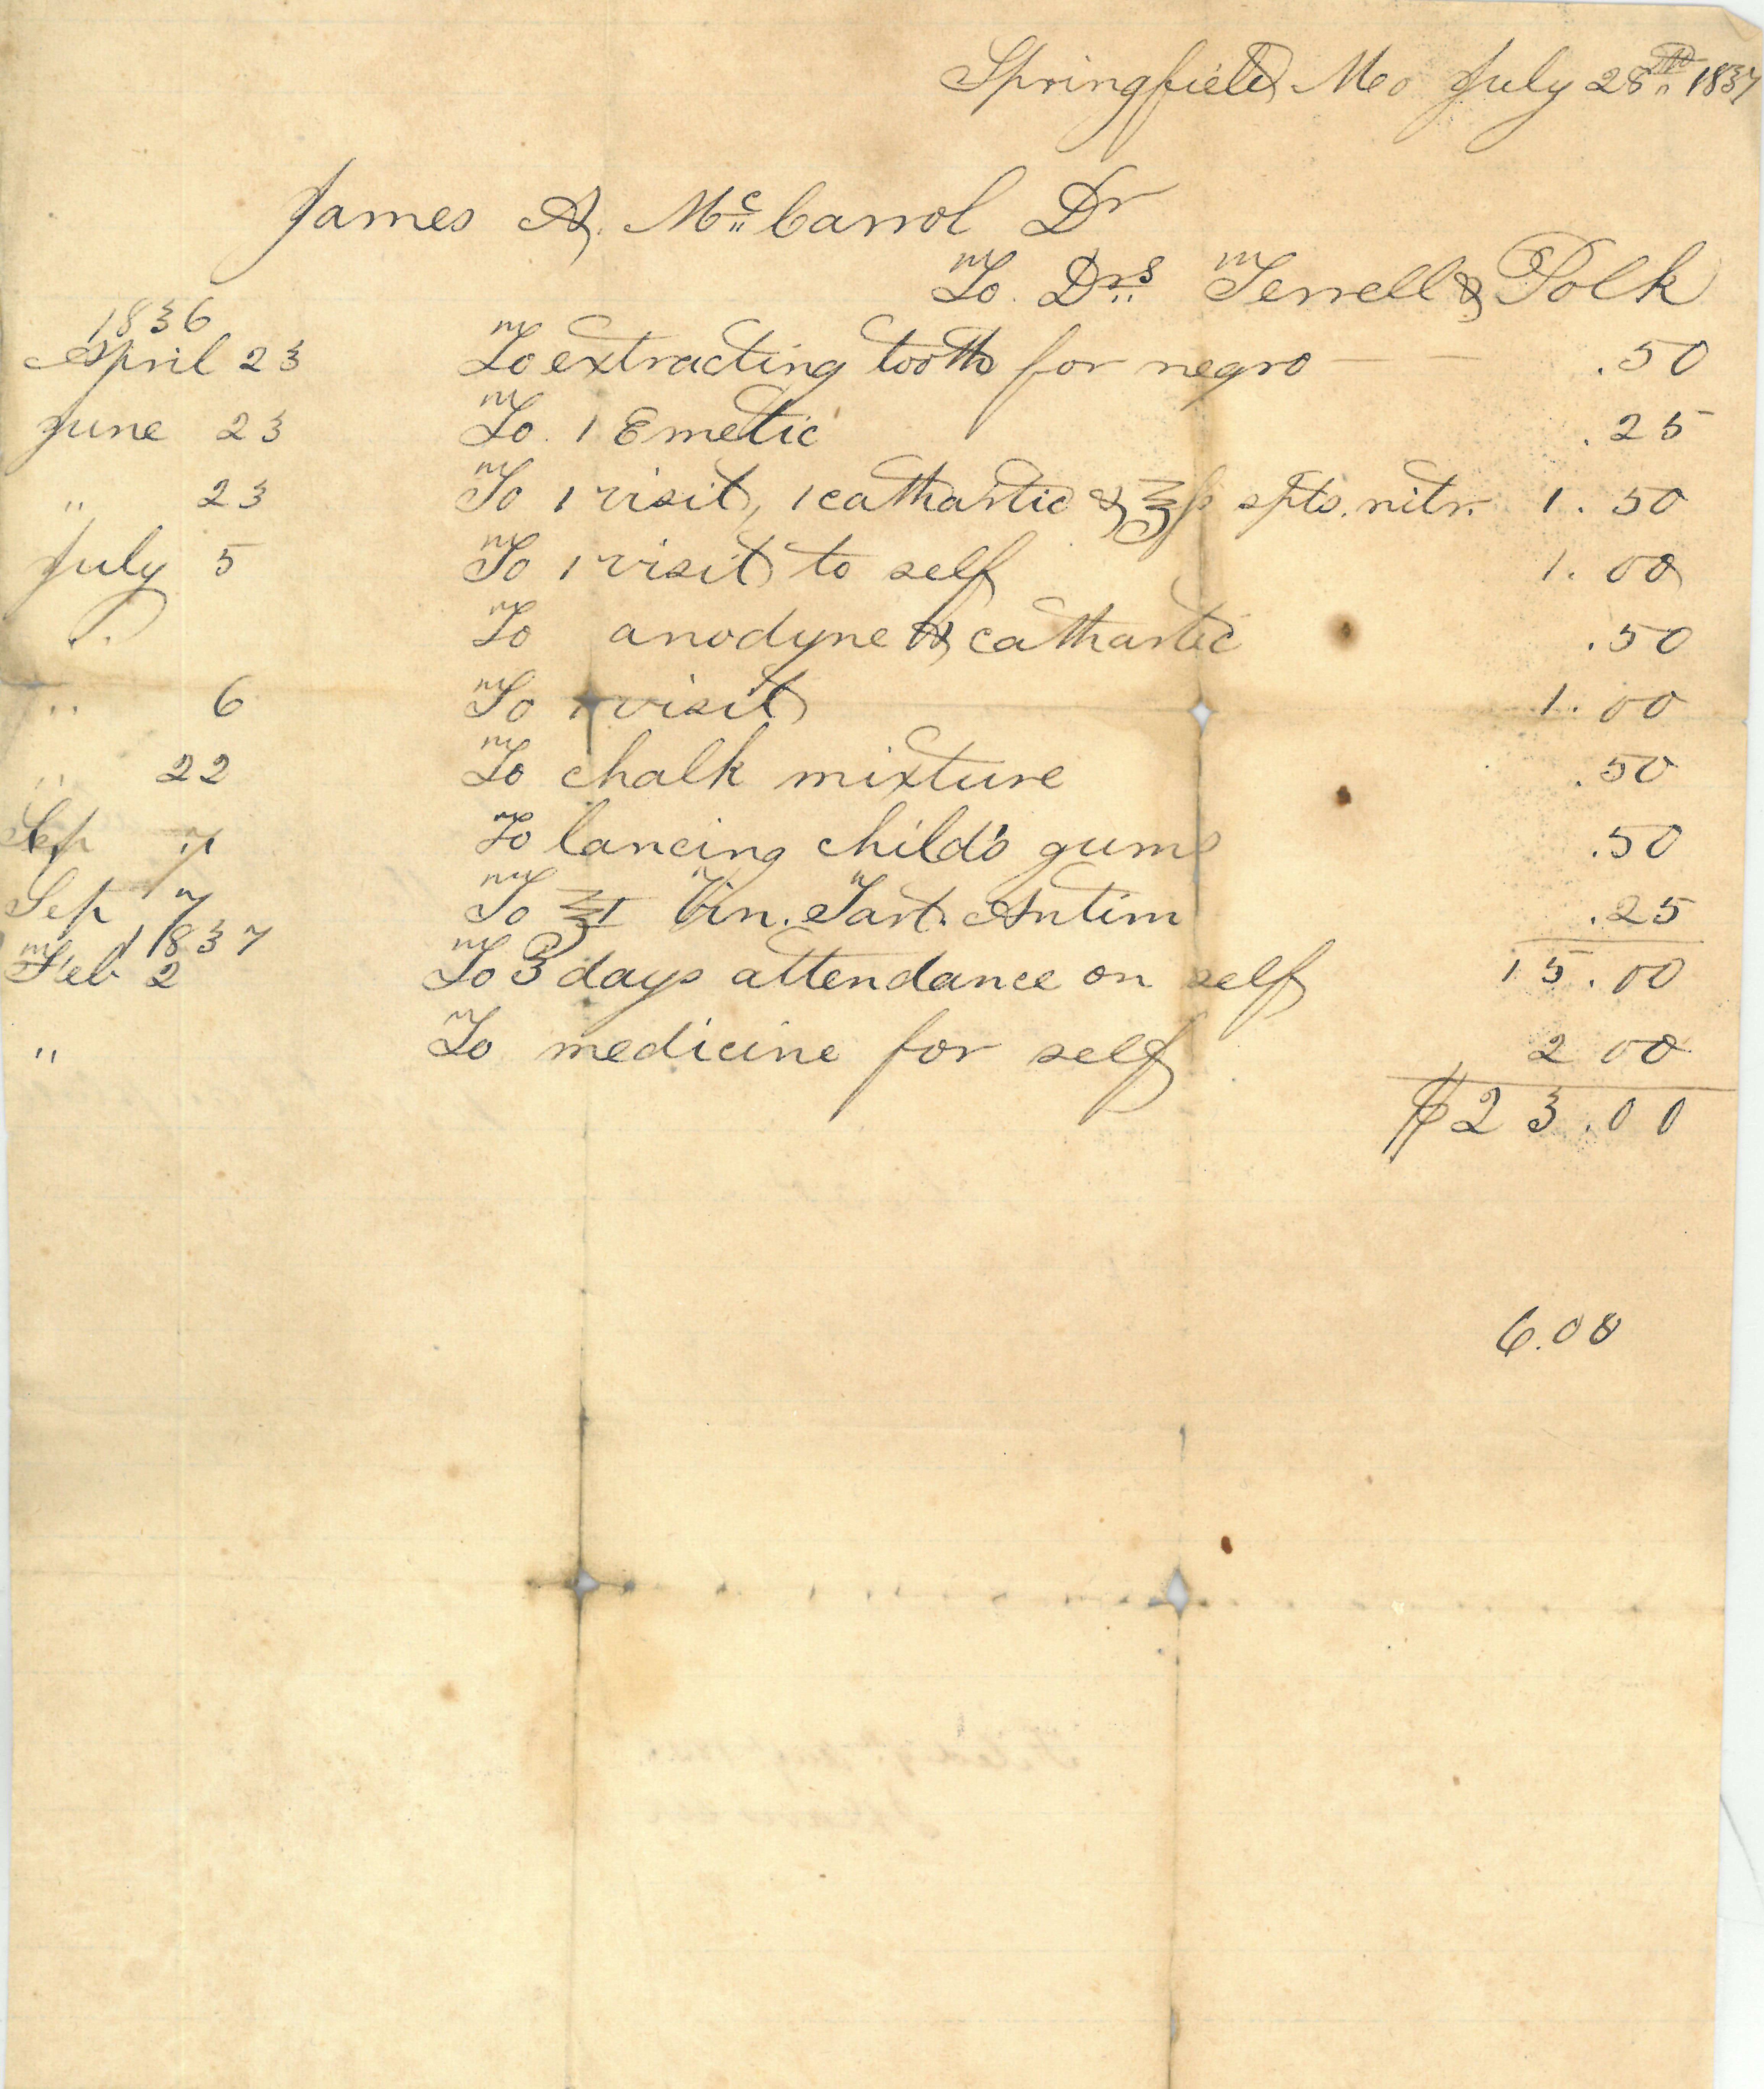 Springfield Mo July 28th 1837
James A. McCarrol Dr
To. Drs Terrell & Polk
1836
April 23 To extracting tooth for negro — .50
June 23 To. 1 Emetic .25
" 23 To 1 visit, 1 cathartic & ℥ss spts. nitr. 1.50
July 5 To 1 visit to self 1.00
" To anodyne & cathartic .50
" 6 To 1 visit 1.00
" 22 To chalk mixture .50
Sep 7 To lancing child's gums .50
Sep 7 To ℥I Vin. Tart. Antim .25
1837
Feb 2 To 3 days attendance on self 15.00
" To medicine for self 2 00
$23.00
6.00